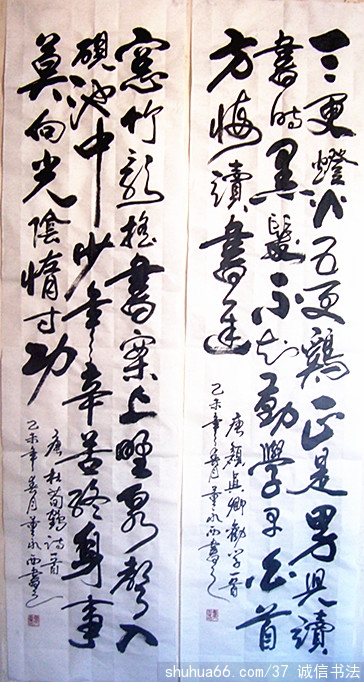 三更燈火五更鷄正是男兒讀
書時黑髮不知勤學早白首
方悔讀書遲
唐顏真卿勸學首
乙未年春月董永西書之
窓竹影搖書案上野泉聲入
硯池中少年辛苦終身事
莫向光陰惰寸功
唐杜荀鶴詩首
乙未年春月董永西書之
shuhua66.com/37 诚信书法